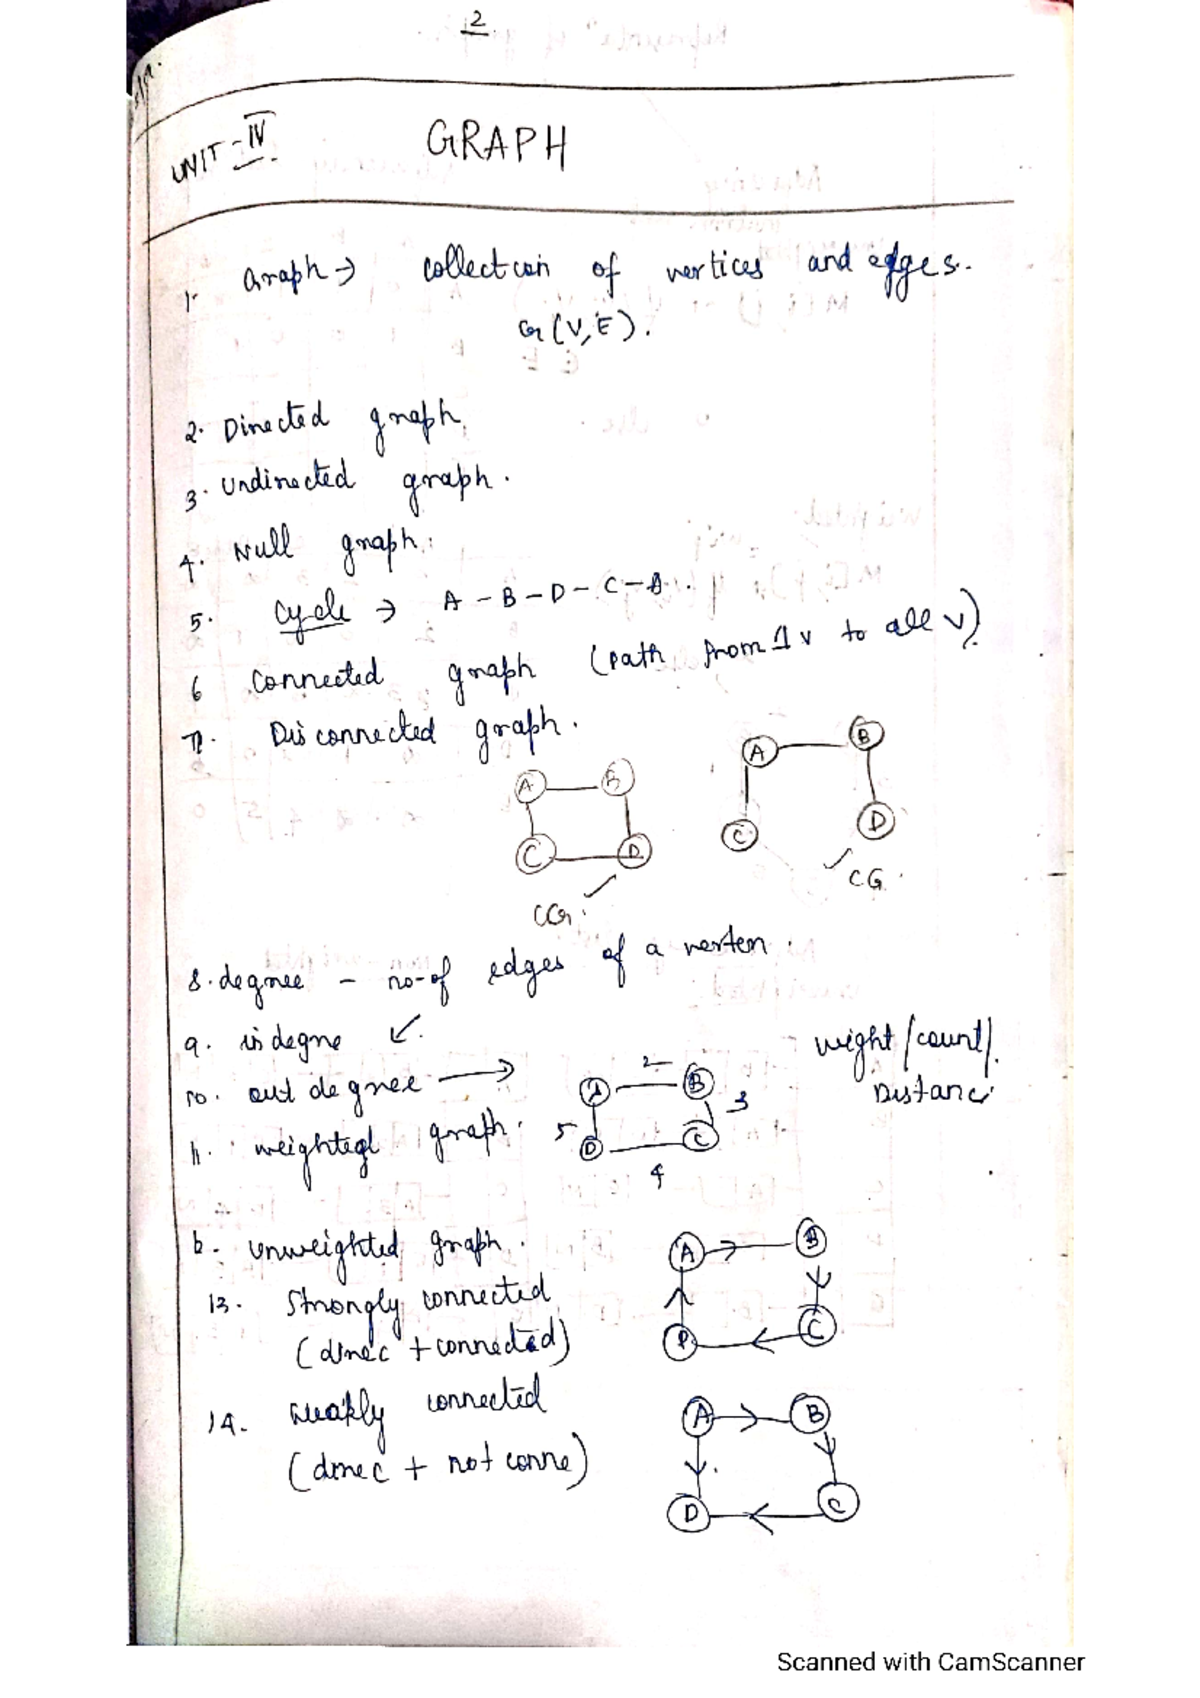 2
UNIT-IV GRAPH
1. Graph → collection of vertices and edges.
G(V,E).
2. Directed graph.
3. Undirected graph.
4. Null graph.
5. Cycle → A-B-D-C-A.
6 Connected graph (path from 1 v to all v).
7. Disconnected graph.
A B
C D
CG.
A B
C D
CG.
8. degree - no-of edges of a vertex.
9. indegre ↙.
10. out degree →
weight/count/.
Distanc
11. weighted graph.
A 2 B
5 3
D C
4
12. unweighted graph.
13. Strongly connected
(direc + connected)
A B
D C
14. weakly connected
(direc + not conne)
A B
D C
Scanned with CamScanner